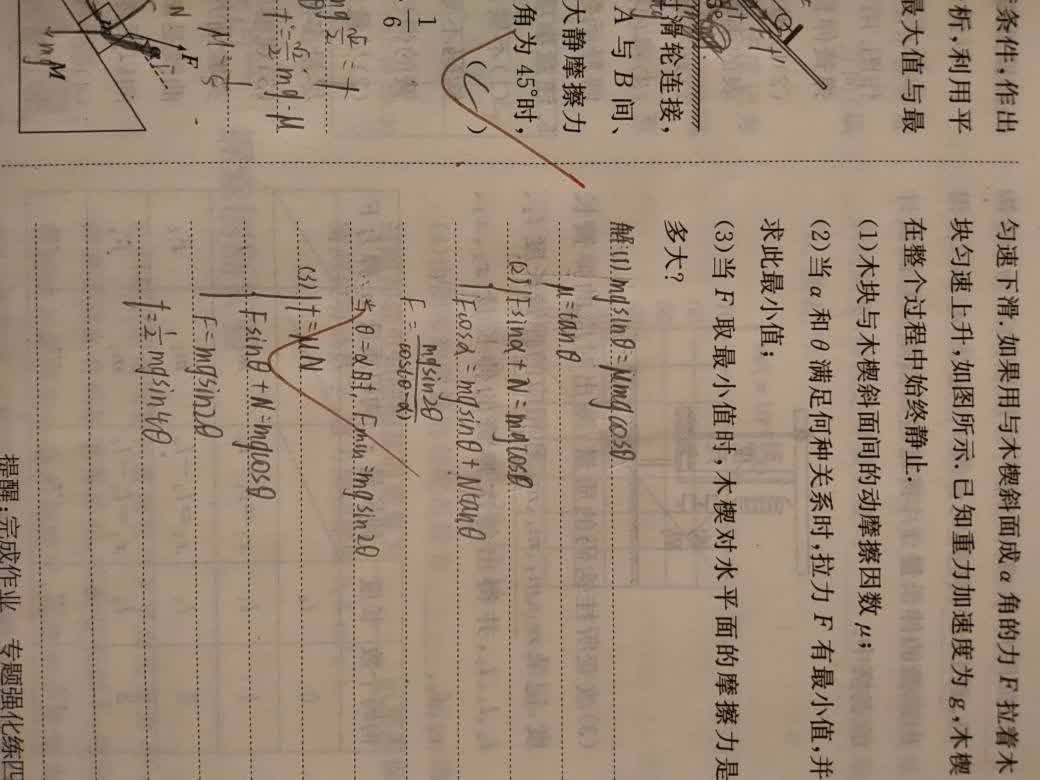 条件,作出
析,利用平
最大值与最
滑轮连接,
A 与 B 间、
大静摩擦力
角为 45°时,
(C)
1/6
N
F
mg
M
匀速下滑.如果用与木楔斜面成 α 角的力 F 拉着木
块匀速上升,如图所示.已知重力加速度为 g,木楔
在整个过程中始终静止.
(1)木块与木楔斜面间的动摩擦因数 μ;
(2)当 α 和 θ 满足何种关系时,拉力 F 有最小值,并
求此最小值;
(3)当 F 取最小值时,木楔对水平面的摩擦力是
多大?
解:(1) mgsinθ=μmgcosθ
μ=tanθ
(2) Fsinα+N=mgcosθ
Fcosα=mgsinθ+Ntanθ
F=mgsin2θ/cos(θ-α)
当 θ=α时, Fmin=mgsin2θ
(3) f=μN
Fsinθ+N=mgcosθ
F=mgsin2θ
f=1/2mgsin4θ.
提醒:完成作业 专题强化练四